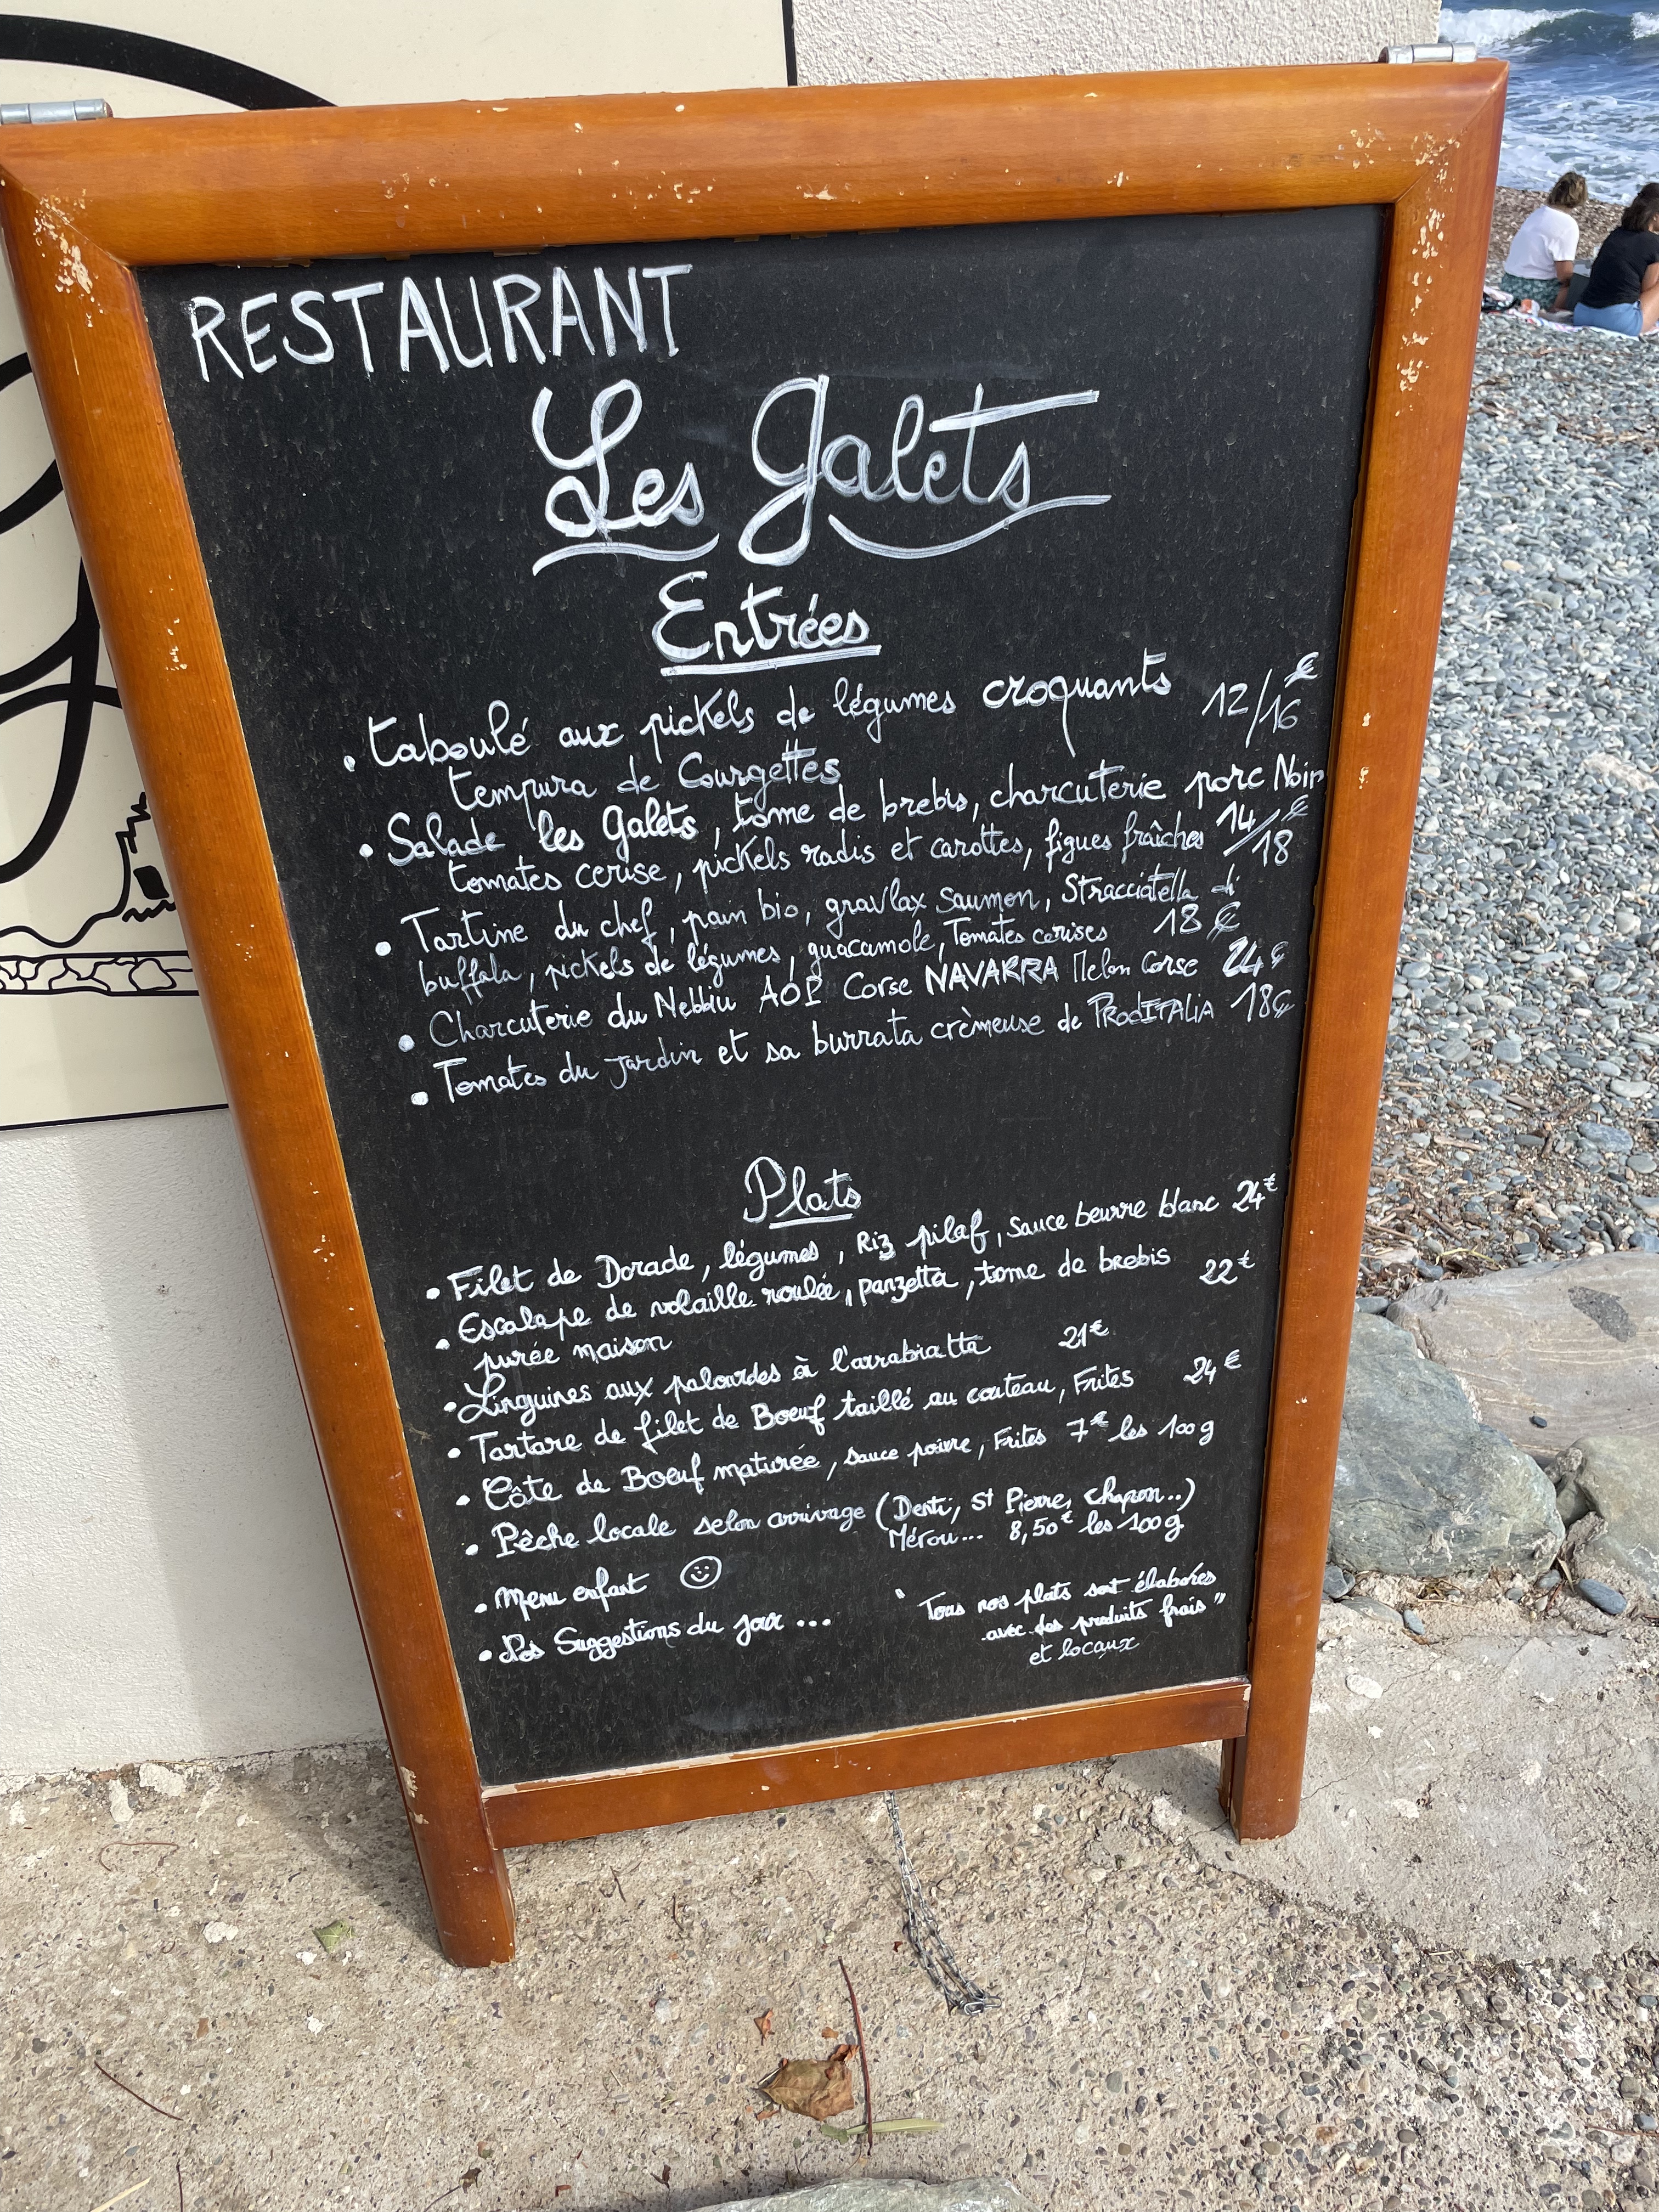 RESTAURANT
Les Galets
Entrées
• taboulé aux pickels de légumes croquants 12/16€
tempura de Courgettes
• Salade les Galets, tome de brebis, charcuterie porc Noir
tomates cerise, pickels radis et carottes, figues fraîches 14/18€
• Tartine du chef, pain bio, gravlax saumon, Stracciatella di
buffala, pickels de légumes, guacamole, Tomates cerises 18€
• Charcuterie du Nebbiu AOP Corse NAVARRA Melon Corse 24€
• Tomates du jardin et sa burrata crèmeuse de PRODITALIA 18€
Plats
• Filet de Dorade, légumes, Riz pilaf, sauce beurre blanc 24€
• Escalope de volaille roulée, panzetta, tome de brebis 22€
purée maison
• Linguines aux palourdes à l'arrabiatta 21€
• Tartare de filet de Boeuf taillé au couteau, Frites 24€
• Côte de Boeuf maturée, sauce poivre, Frites 7€ les 100g
• Pêche locale selon arrivage (Denti, St Pierre, chapon..)
Mérou... 8,50€ les 100g
• Menu enfant ☺
• Nos Suggestions du jour ...
"Tous nos plats sont élaborés
avec des produits frais"
et locaux